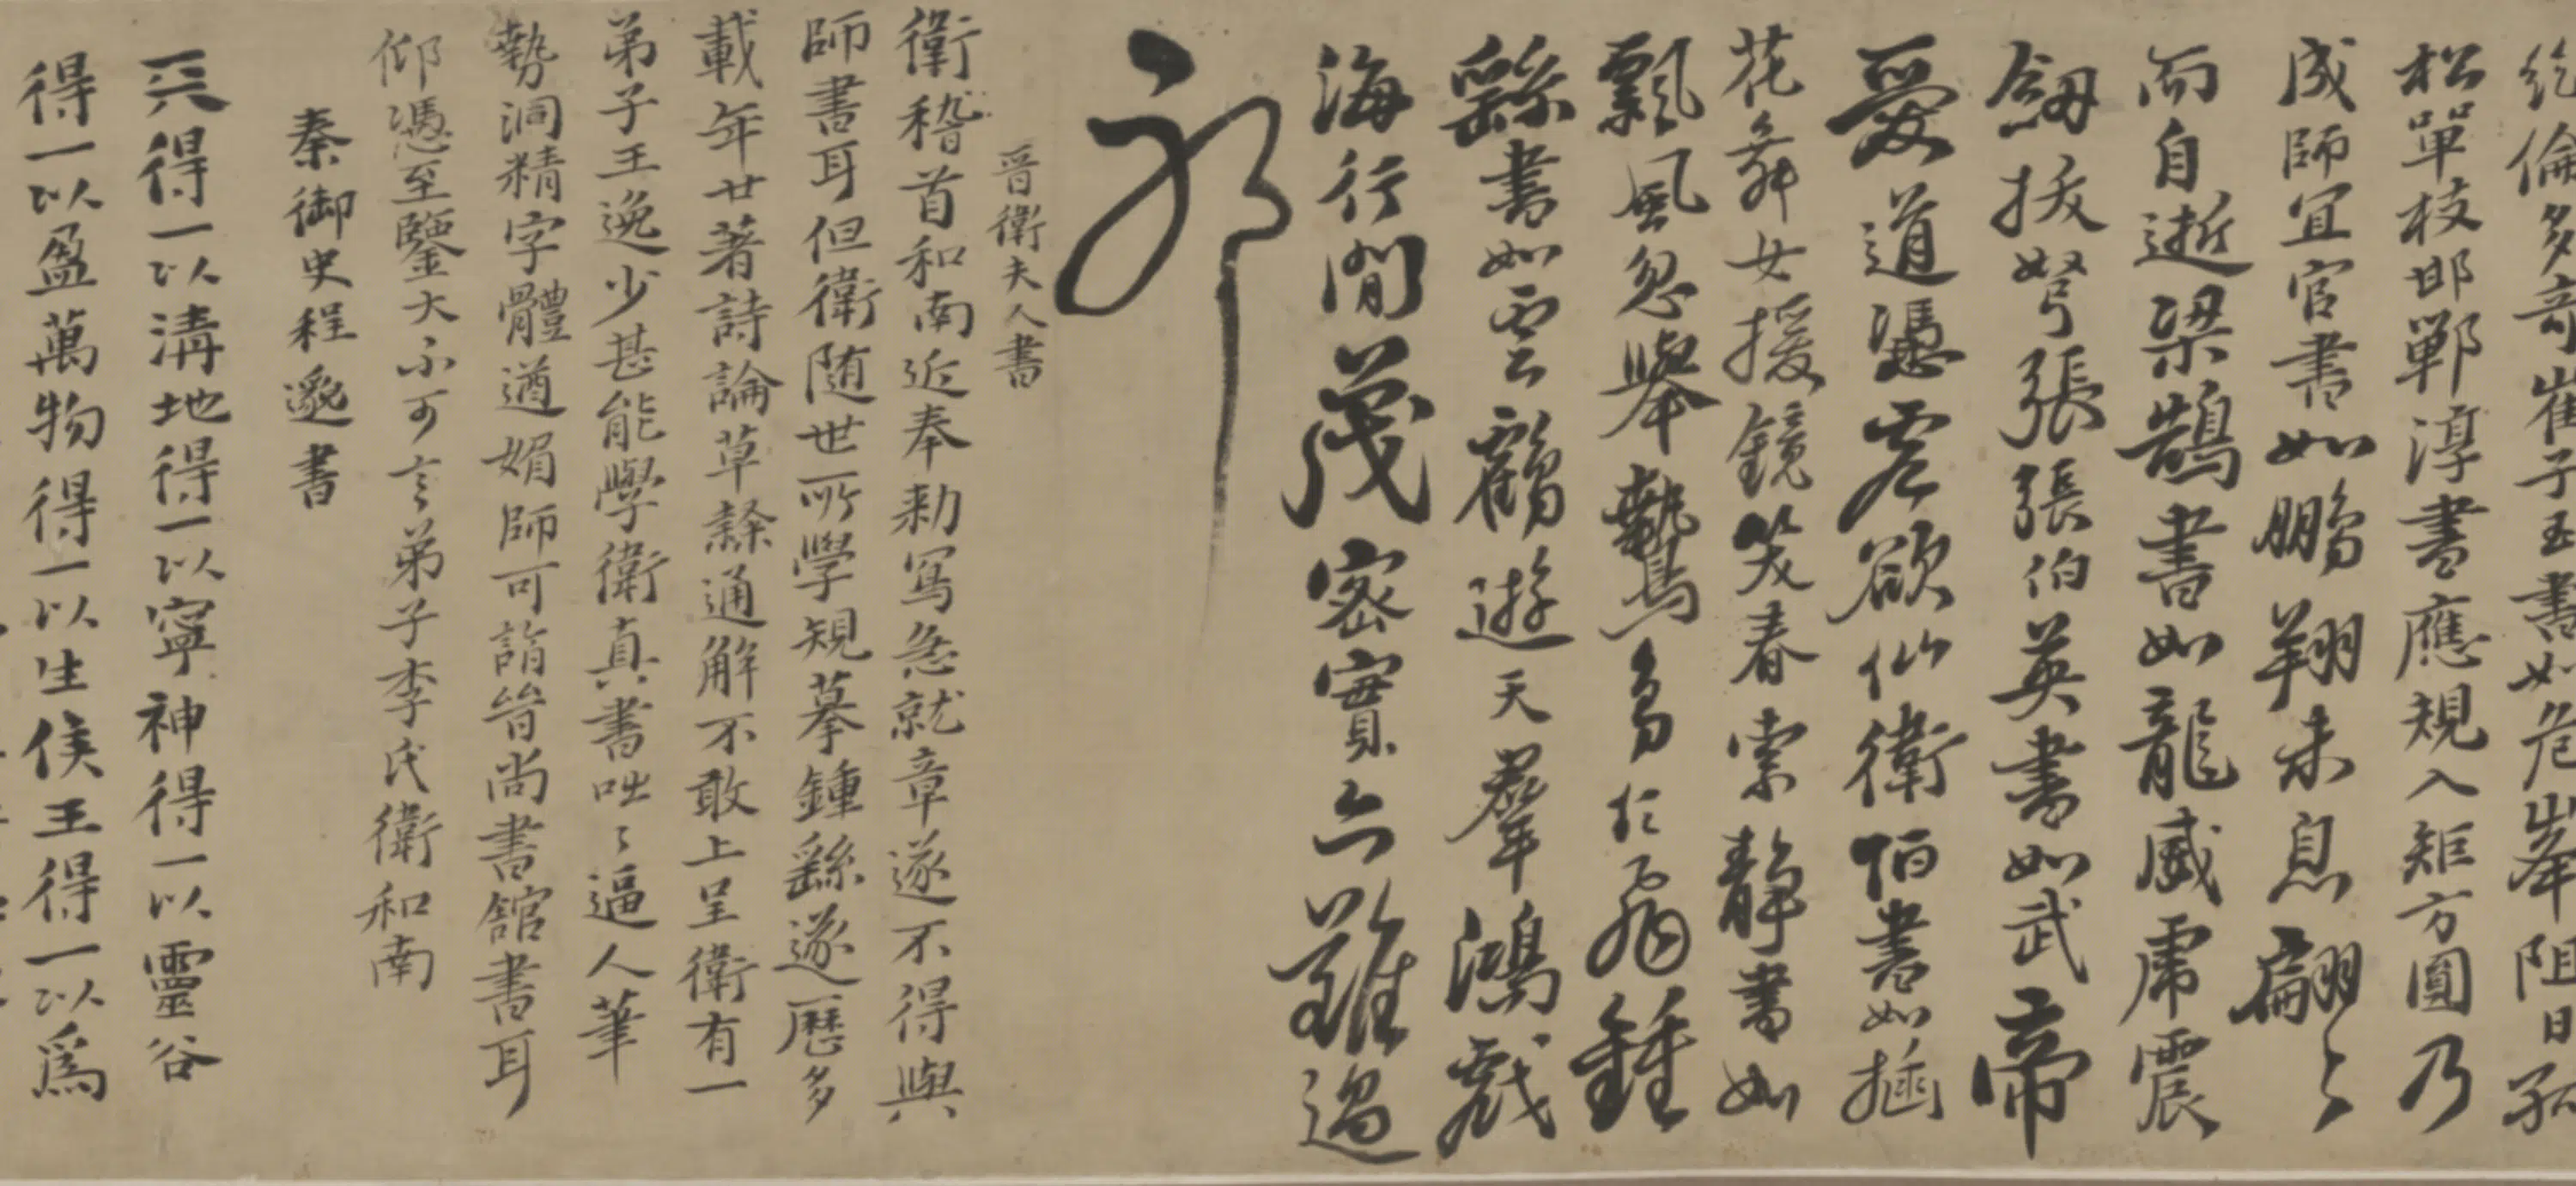 絶倫多奇崔子玉書如危峯阻日孤
松單枝邯鄲淳書應規入矩方圓乃
成師宜官書如鵬翔未息翩々
而自逝梁鵠書如龍威虎震
劔拔弩張張伯英書如武帝
愛道憑虛欲仙衛恒書如插
花舞女援鏡笑春索靖書如
飄風忽舉鷙鳥乍飛鍾
繇書如雲鶴遊天羣鴻戲
海行間茂密實亦難過
耶
晋衛夫人書
衛稽首和南近奉勑寫急就章遂不得與
師書耳但衛隨世所學規摹鍾繇遂歷多
載年廿著詩論草隸通解不敢上呈衛有一
弟子王逸少甚能學衛真書咄々逼人筆
勢洞精字體遒媚師可詣晉尚書館書耳
仰憑至鑒大不可言弟子李氏衛和南
秦御史程邈書
天得一以清地得一以寧神得一以靈谷
得一以盈萬物得一以生侯王得一以為